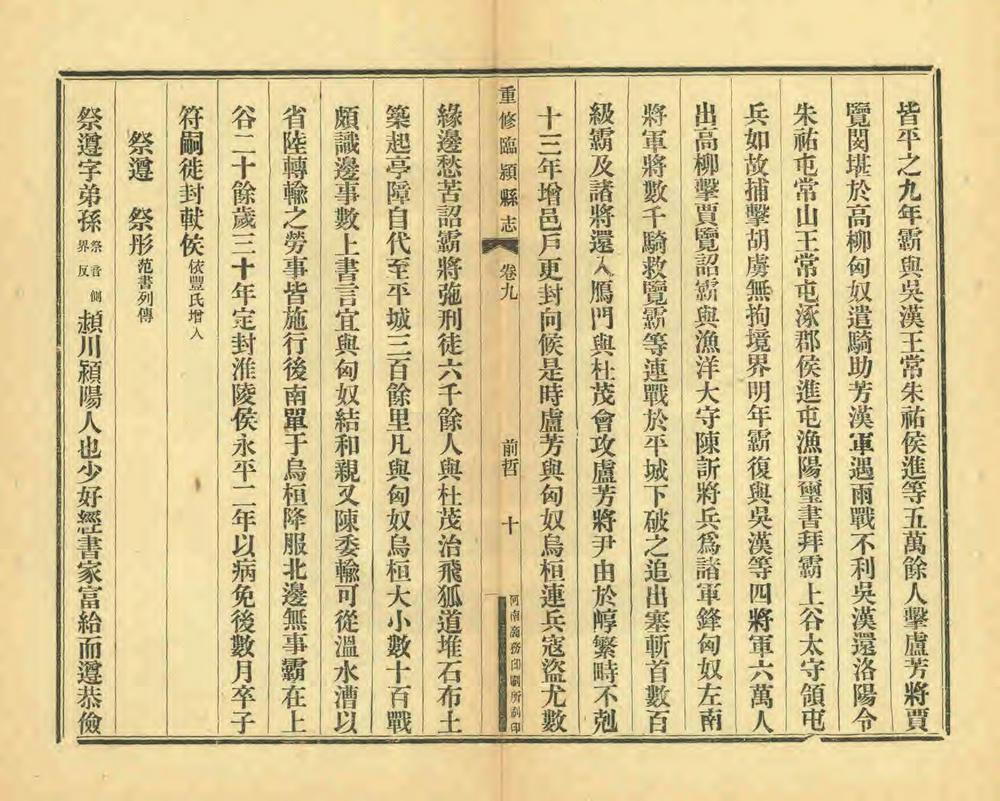 皆平之九年霸與吳漢王常朱祐侯進等五萬餘人擊盧芳將賈
覽閔堪於高柳匈奴遣騎助芳漢軍遇雨戰不利吳漢還洛陽令
朱祐屯常山王常屯涿郡侯進屯漁陽璽書拜霸上谷太守領屯
兵如故捕擊胡虜無拘境界明年霸復與吳漢等四將軍六萬人
出高柳擊賈覽詔霸與漁洋大守陳訢將兵爲諸軍鋒匈奴左南
將軍將數千騎救覽霸等連戰於平城下破之追出塞斬首數百
級霸及諸將還入鴈門與杜茂會攻盧芳將尹由於崞繁畤不剋
十三年增邑戸更封向候是時盧芳與匈奴烏桓連兵寇盜尤數
重修臨潁縣志 卷九 前哲 十 河南商務印刷所刷印
緣邊愁苦詔霸將弛刑徒六千餘人與杜茂治飛狐道堆石布土
築起亭障自代至平城三百餘里凡與匈奴烏桓大小數十百戰
頗識邊事數上書言宜與匈奴結和親又陳委輸可從溫水漕以
省陸轉輸之勞事皆施行後南單于烏桓降服北邊無事霸在上
谷二十餘歲三十年定封淮陵侯永平二年以病免後數月卒子
符嗣徙封軑侯依豐氏增入
祭遵 祭彤范書列傳
祭遵字弟孫祭音側界反潁川潁陽人也少好經書家富給而遵恭儉